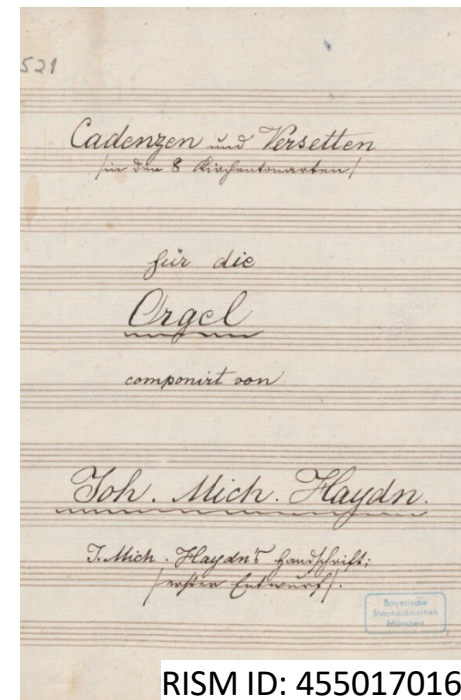 521
Cadenzen und Versetten
/in den 8 Kirchentonarten/
für die
Orgel
componirt von
Joh. Mich. Haydn.
J. Mich. Haydn's Handschrift;
/erster Entwurf/.
Bayerische
Staatsbibliothek
München
RISM ID: 455017016